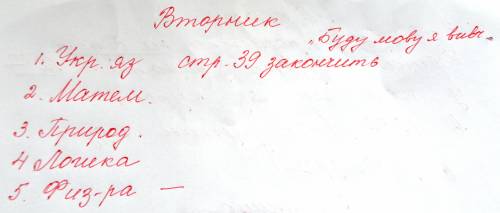 Вторник
„Буду мову я вивч„
1. Укр. яз стр. 39 закончить
2. Матем.
3. Природ.
4 Логика
5. Физ-ра —